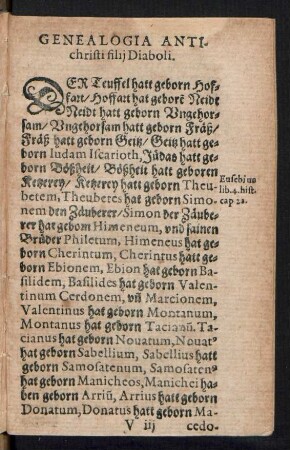 GENEALOGIA ANTI-
christi filij Diaboli.
DER Teuffel hatt geborn Hof-
fart/ Hoffart hat geborē Neidt
Neidt hatt geborn Vngehor-
sam/ Vngehorsam hatt geborn Fräß/
Fräß hatt geborn Geitz/ Geitz hatt ge-
born Iudam Iscarioth, Judas hatt ge-
born Bößheit/ Bößheit hatt geboren
Ketzerey/ Ketzerey hatt geborn Theu-
betem, Theubetes hat geborn Simo-
nem den Zäuberer/ Simon der Zäube-
rer hat geborn Himeneum, vnd sainen
Brůder Philetum, Himeneus hat ge-
born Cherintum, Cherintus hatt ge-
born Ebionem, Ebion hat geborn Ba-
silidem, Basilides hat geborn Valen-
tinum Cerdonem, vñ Marcionem,
Valentinus hat geborn Montanum,
Montanus hat geborn Tacianū. Ta-
cianus hat geborn Nouatum, Nouat9
hat geborn Sabellium, Sabellius hatt
geborn Samosatenum, Samosaten9
hat geborn Manicheos, Manichei ha-
ben geborn Arriū, Arrius hatt geborn
Donatum, Donatus hatt geborn Ma-
Eusebius
lib.4. hist.
cap 22.
V iij
cedo-